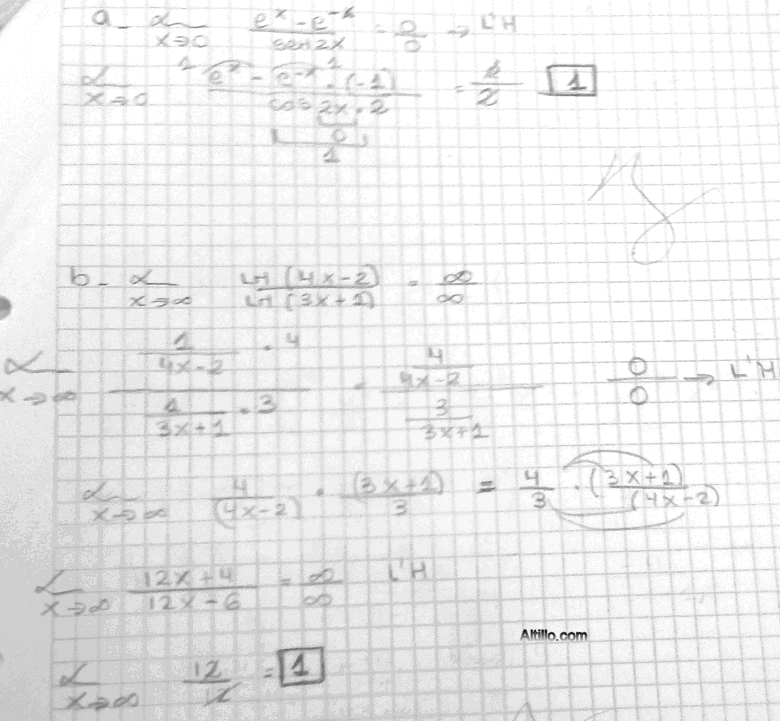 a- L x→0 e^x - e^-x / sen 2x = 0/0 → L'H
L x→0 e^x - e^-x · (-1) / cos 2x · 2 = 2/2 1
1 1
0
1
b- L x→∞ LN (4x-2) / LN (3x+1) = ∞/∞
L x→∞ 1/(4x-2) · 4 / 1/(3x+1) · 3 = 4/(4x-2) / 3/(3x+1) 0/0 → L'H
L x→∞ 4/(4x-2) · (3x+1)/3 = 4/3 · (3x+1)/(4x-2)
L x→∞ 12x+4 / 12x-6 = ∞/∞ L'H
Altillo.com
L x→∞ 12/12 = 1